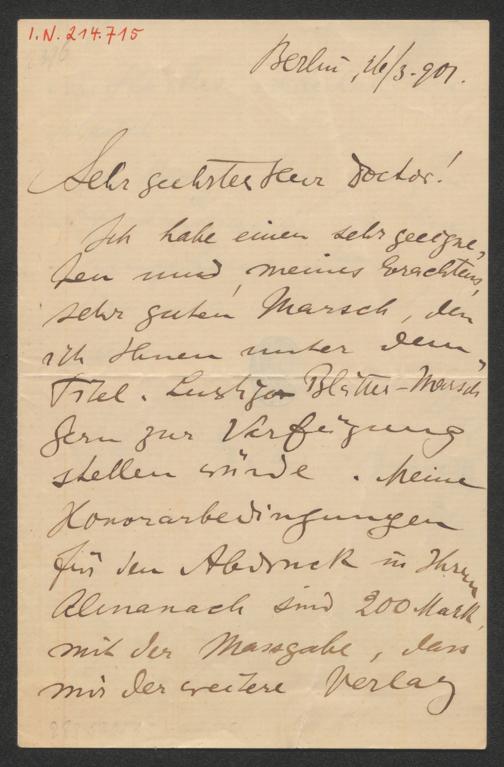 I.N. 214.715
Berlin, 26/3. 901.
Sehr geehrter Herr Doctor!
Ich habe einen sehr geeigne-
ten und, meines Erachtens,
sehr guten Marsch, den
ich Ihnen unter dem
Titel. Lustige Blätter-Marsch
gern zur Verfügung
stellen würde. Meine
Honorarbedingungen
für den Abdruck in Ihrem
Almanach sind 200 Mark,
mit der Massgabe, dass
mir der weitere Verlag